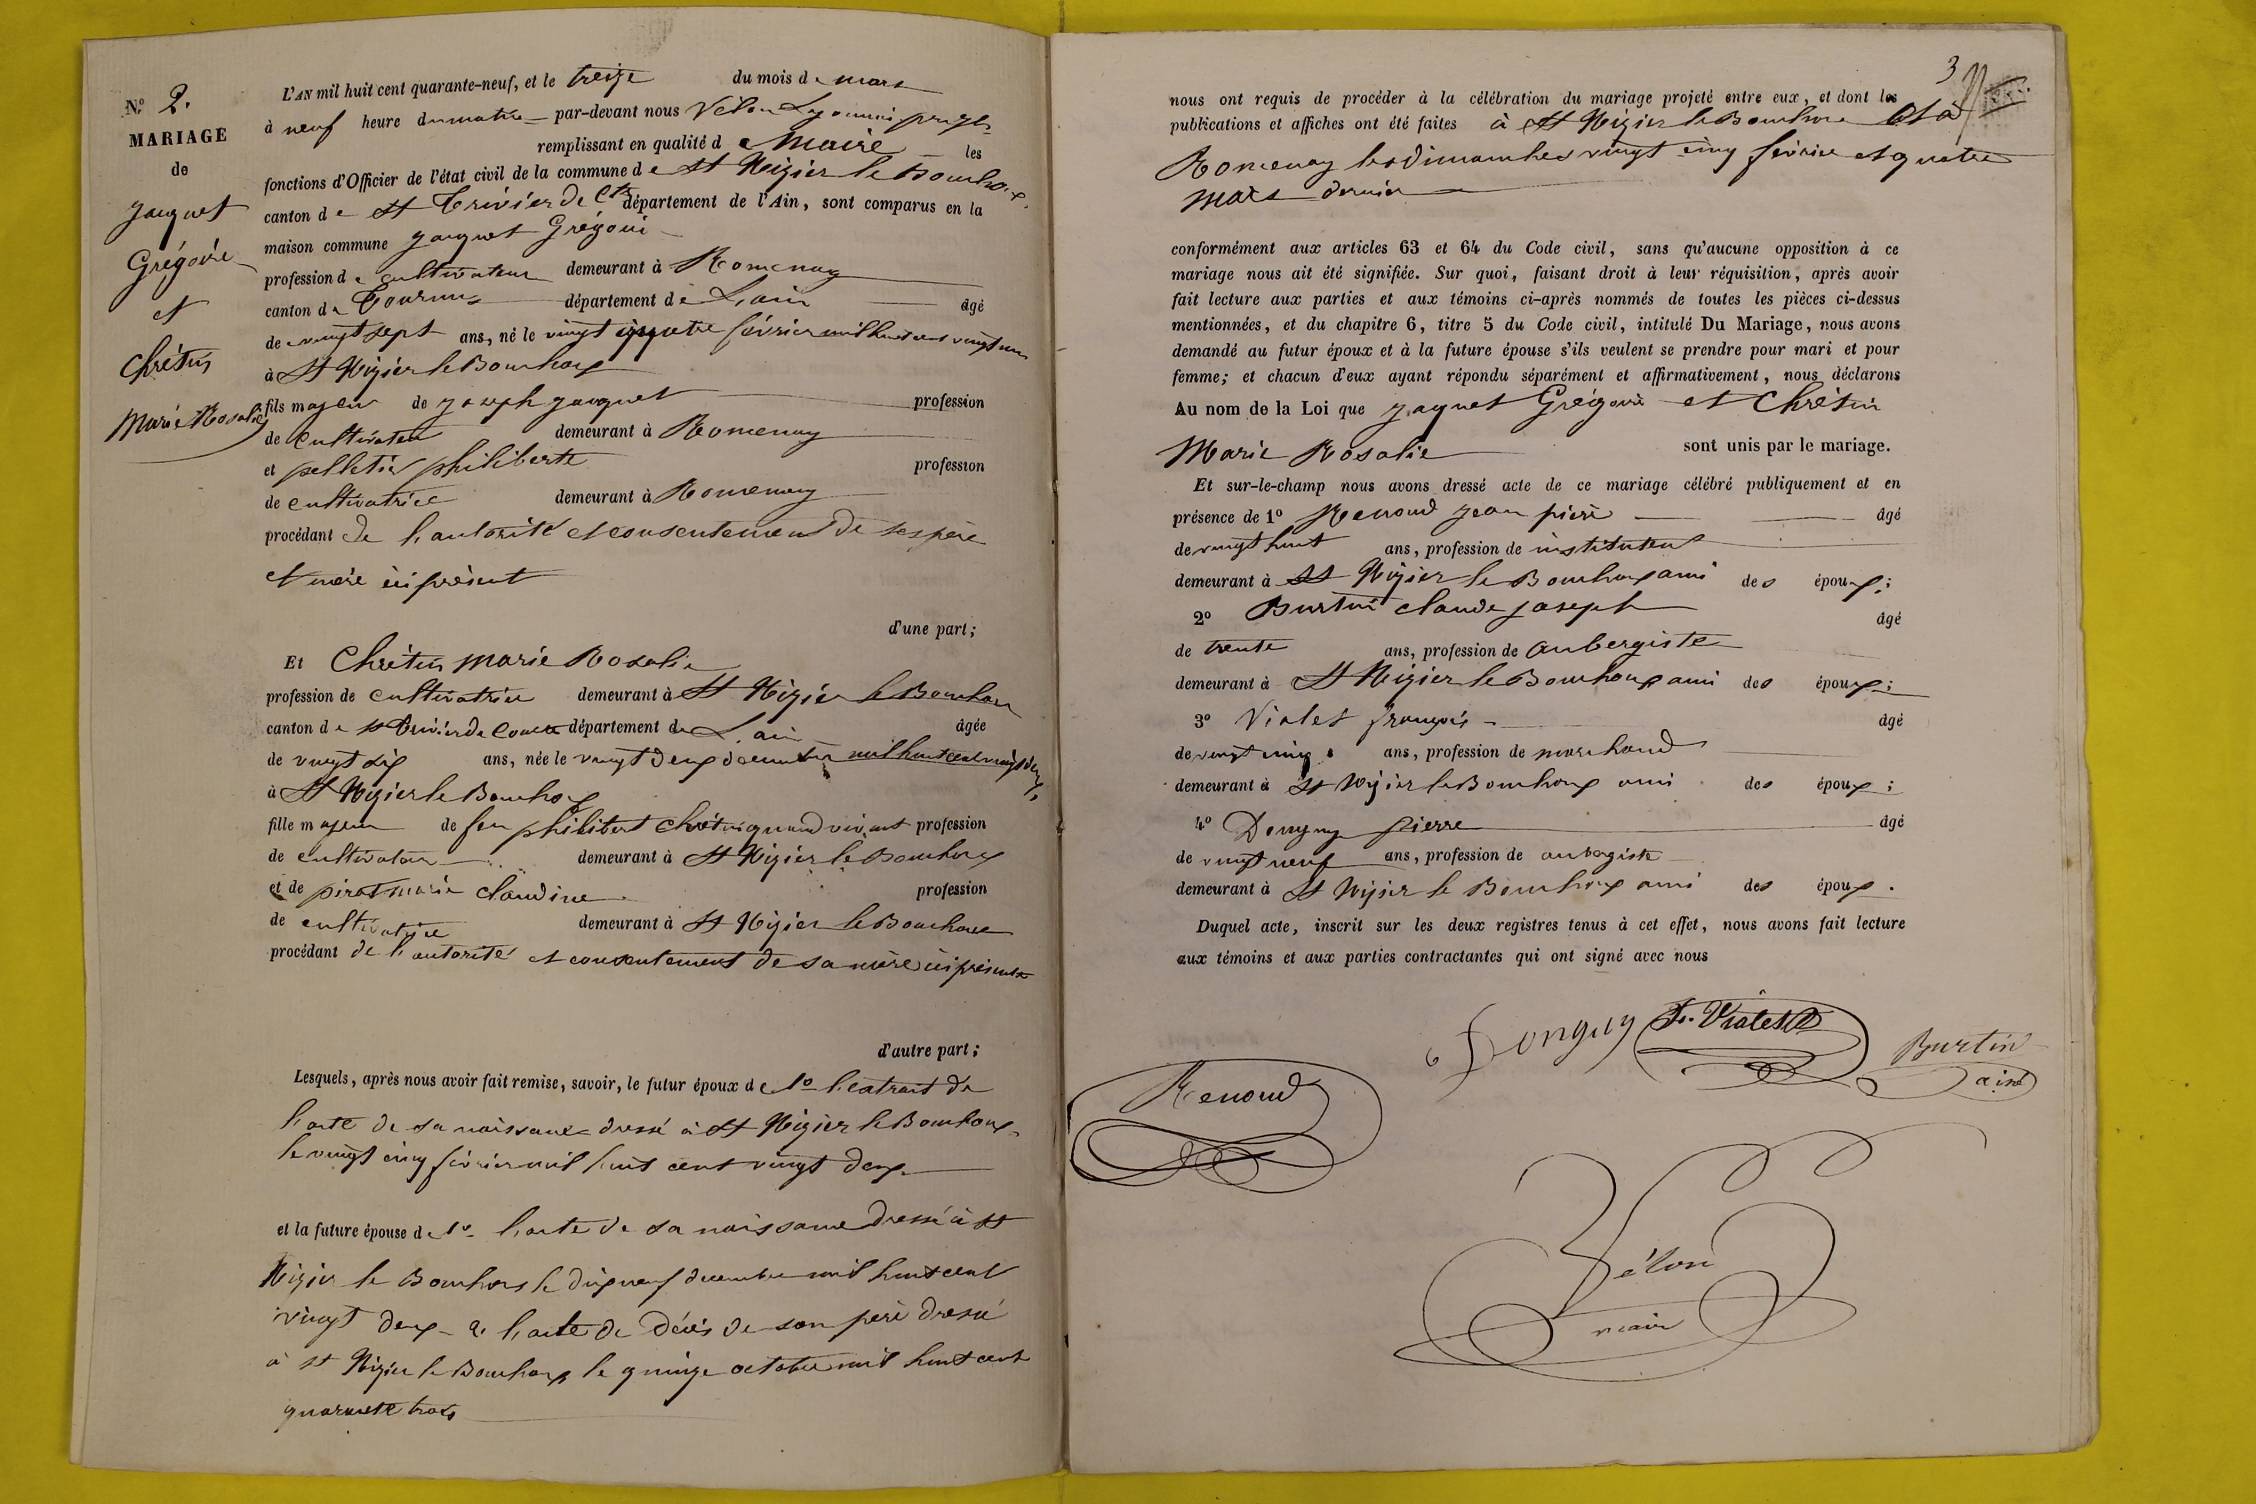 N.º 2.
MARIAGE
de
jacquet
Grégoire
et
Chrétin
Marie Rosalie
L'AN mil huit cent quarante-neuf, et le treize du mois de mars
à neuf heure du matin par-devant nous Vélon
remplissant en qualité de Maire les
fonctions d'Officier de l'état civil de la commune de St Nizier le Bouchoux
canton de St Trivier de Cts département de l'Ain, sont comparus en la
maison commune jacquet Grégoire
profession de cultivateur demeurant à Romenay
canton de Tournus département de L'ain âgé
de vingt sept ans, né le vingt quatre février mil huit cent vingt
à St Nizier le Bouchoux
fils majeur de joseph jacquet profession
de cultivateur demeurant à Romenay
et pelletier philiberte profession
de cultivatrice demeurant à Romenay
procédant de l'autorité et consentement de ses père
et mère ici présent
d'une part;
Et Chrétin marie Rosalie
profession de cultivatrice demeurant à St Nizier le Bouchoux
canton de st Trivier de Courtes département de L'ain âgée
de vingt six ans, née le vingt deux décembre mil huit cent vingt deux
à St Nizier le Bouchoux
fille majeur de feu philibert Chrétin quand vivant profession
de cultivateur demeurant à St Nizier le Bouchoux
et de pirat marie claudine profession
de cultivatrice demeurant à St Nizier le Bouchoux
procédant de l'autorité et consentement de sa mère ici présente
d'autre part;
Lesquels, après nous avoir fait remise, savoir, le futur époux de 1º l'extrait de
l'acte de sa naissance dressé à St Nizier le Bouhoux
le vingt cinq février mil huit cent vingt deux
et la future épouse de 1º l'acte de sa naissance dressé à St
Nizier le Bouchoux le dix neuf decembre mil huit cent
vingt deux 2º l'acte de décès de son père dressé
à st Nizier le Bouchoux le quinze octobre mil huit cent
quarante trois
3
nous ont requis de procéder à la célébration du mariage projeté entre eux, et dont les
publications et affiches ont été faites à St Nizier le Bouchoux et à
Romenay les dimanches vingt cinq février et quatre
mars dernier
conformément aux articles 63 et 64 du Code civil, sans qu'aucune opposition à ce
mariage nous ait été signifiée. Sur quoi, faisant droit à leur réquisition, après avoir
fait lecture aux parties et aux témoins ci-après nommés de toutes les pièces ci-dessus
mentionnées, et du chapitre 6, titre 5 du Code civil, intitulé Du Mariage, nous avons
demandé au futur époux et à la future épouse s'ils veulent se prendre pour mari et pour
femme; et chacun d'eux ayant répondu séparément et affirmativement, nous déclarons
Au nom de la Loi que jaquet Grégoire et Chrétin
Marie Rosalie sont unis par le mariage.
Et sur-le-champ nous avons dressé acte de ce mariage célébré publiquement et en
présence de 1º Renoud jean pierre âgé
de vingt huit ans, profession de instituteur
demeurant à St Nizier le Bouchoux ami des époux;
2º Burtin claude joseph âgé
de trente ans, profession de aubergiste
demeurant à St Nizier le Bouchoux ami des époux;
3º Violet françois âgé
de vingt cinq ans, profession de marchand
demeurant à St Nizier le Bouchoux ami des époux;
4º Donguy pierre âgé
de vingt neuf ans, profession de aubergiste
demeurant à St Nizier le Bouchoux ami des époux.
Duquel acte, inscrit sur les deux registres tenus à cet effet, nous avons fait lecture
aux témoins et aux parties contractantes qui ont signé avec nous
Donguy f. Violet Burtin
ainé
Renoud
Vélon
maire